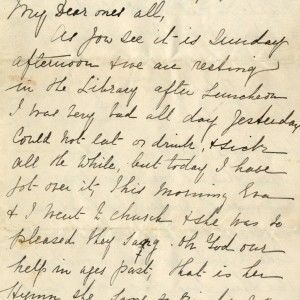 My Dear ones all,
As you see it is Sunday
afternoon & we are resting
in the Library after Luncheon
I was very bad all day Yesterday
Could not eat or drink, & sick
all the while, but today I have
got over it, This morning Eva
& I went to church & she was so
pleased they sang Oh God our
help in ages past, that is her
Hymn she